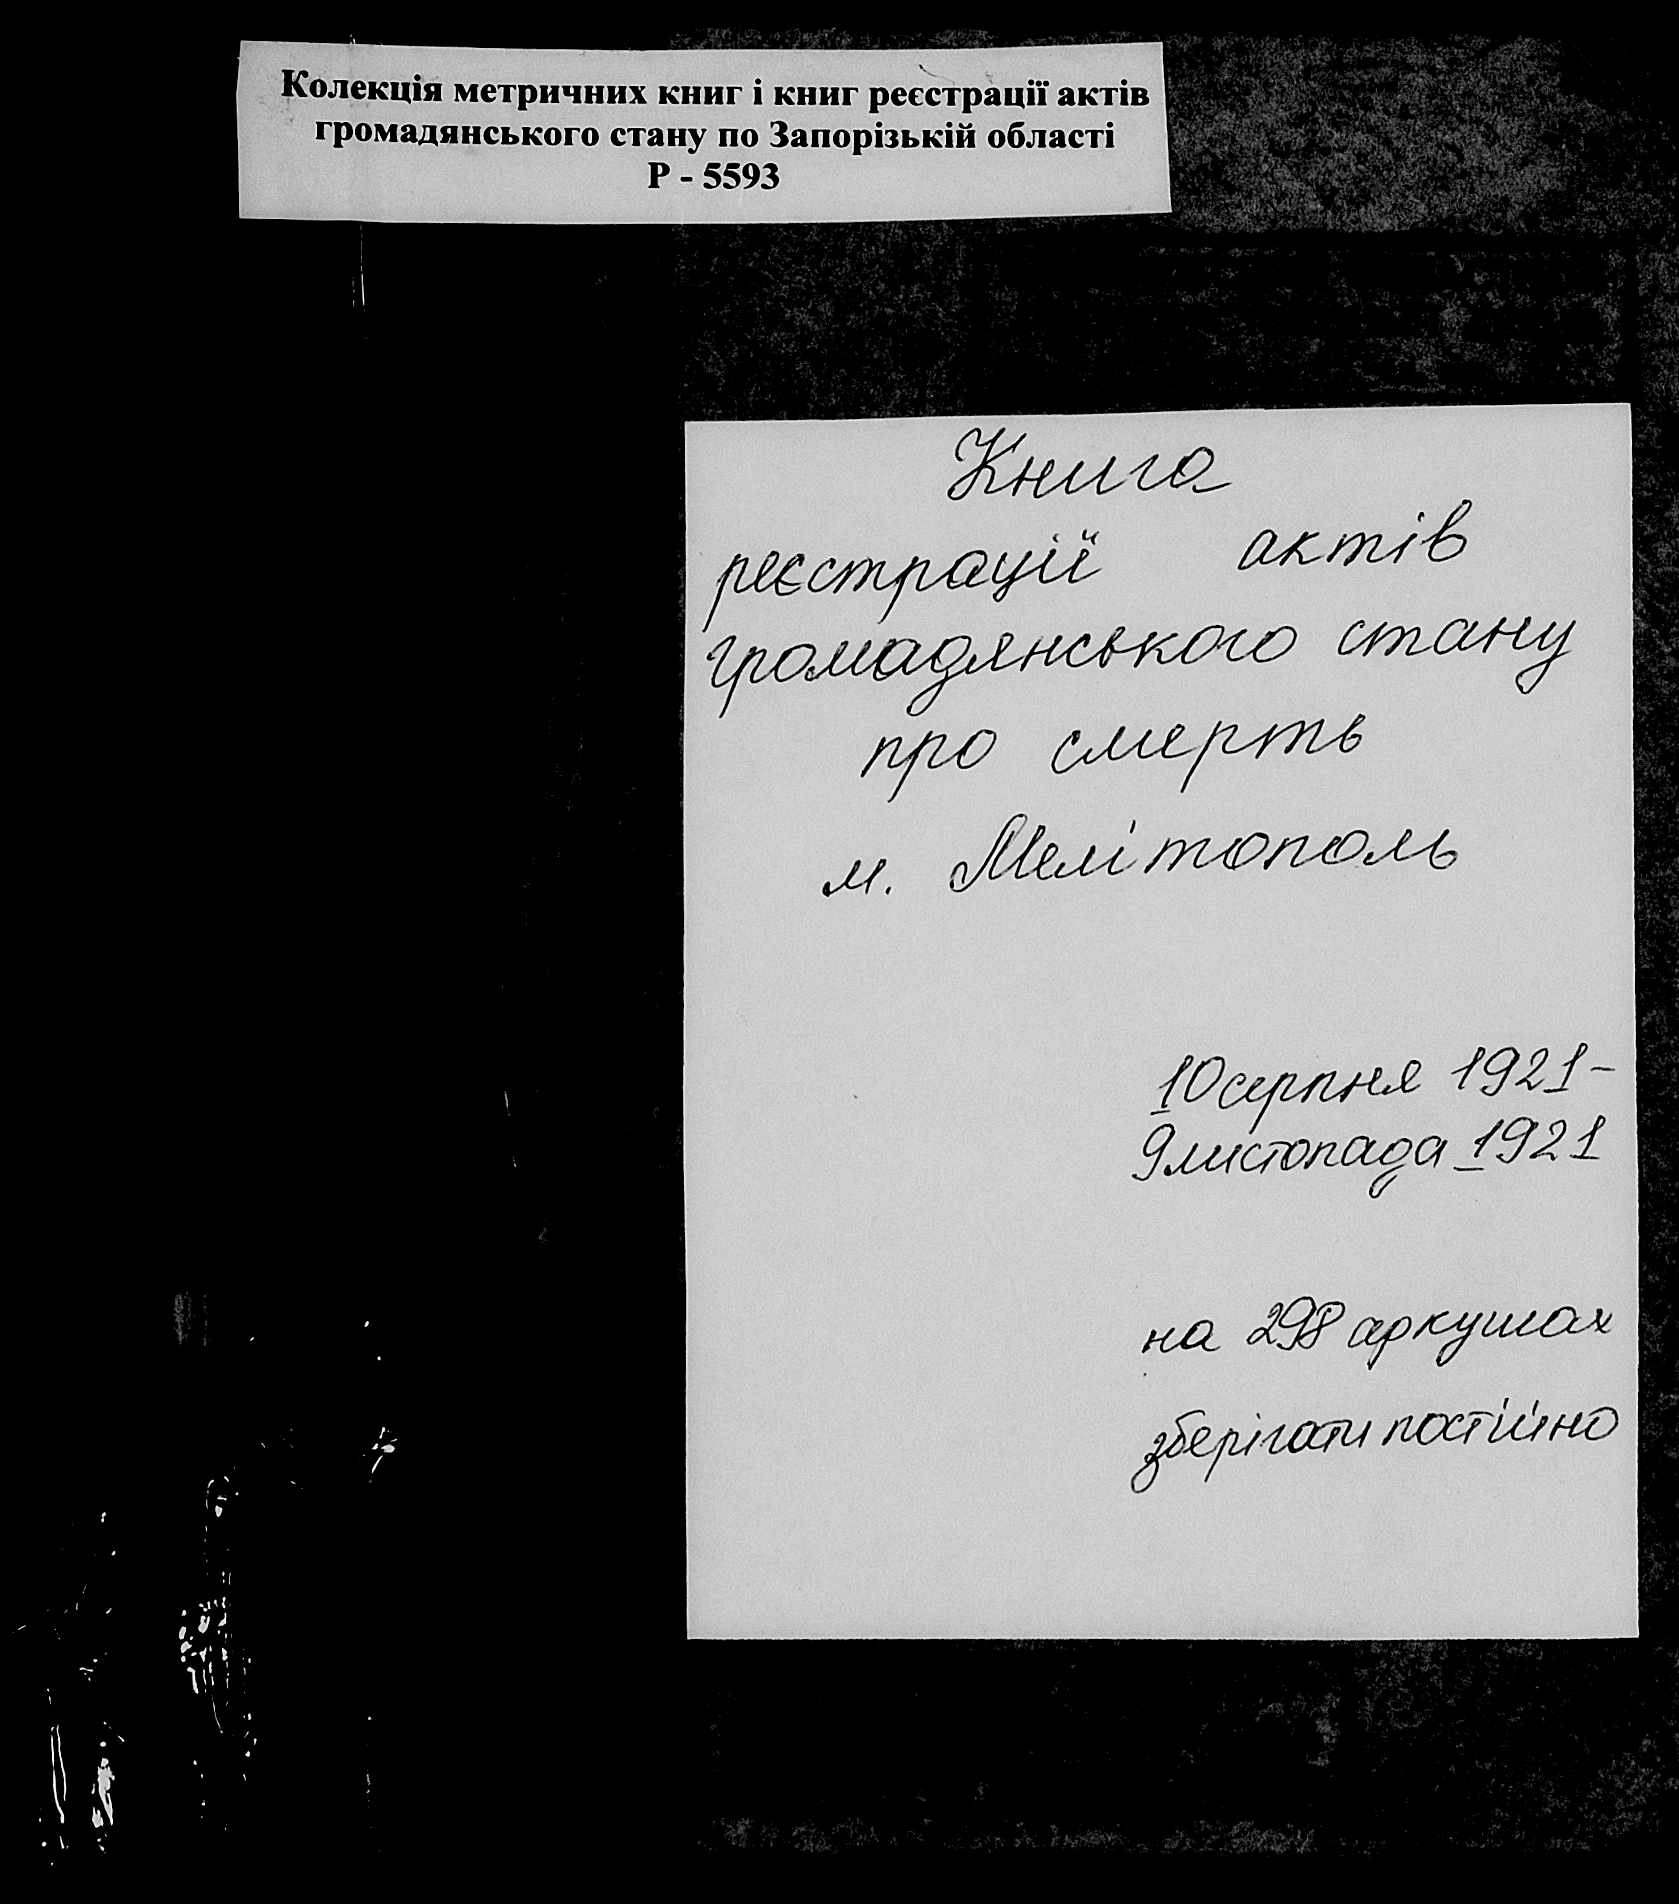 Колекція метричних книг і книг реєстрації актів
громадянського стану по Запорізькій області
Р - 5593
Книга
реєстрації актів
громадянського стану
про смерть
м. Мелітополь
10 серпня 1921 –
9 листопада 1921
на 298 аркушах
зберігати постійно